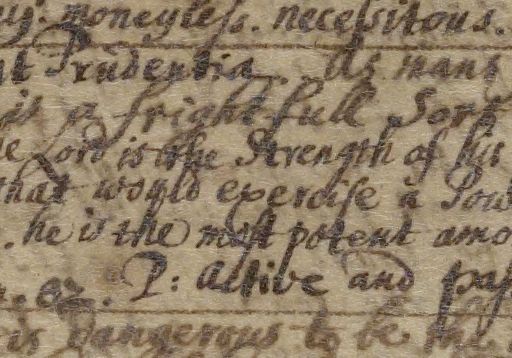 moneyless. necessitous.
Prudentia. As mans
is a fright-full Sort
Lord is the Strength of his
that would exercise a Pow
. he is the most potent amo
&. P: Active and pas
is dangerous to be the